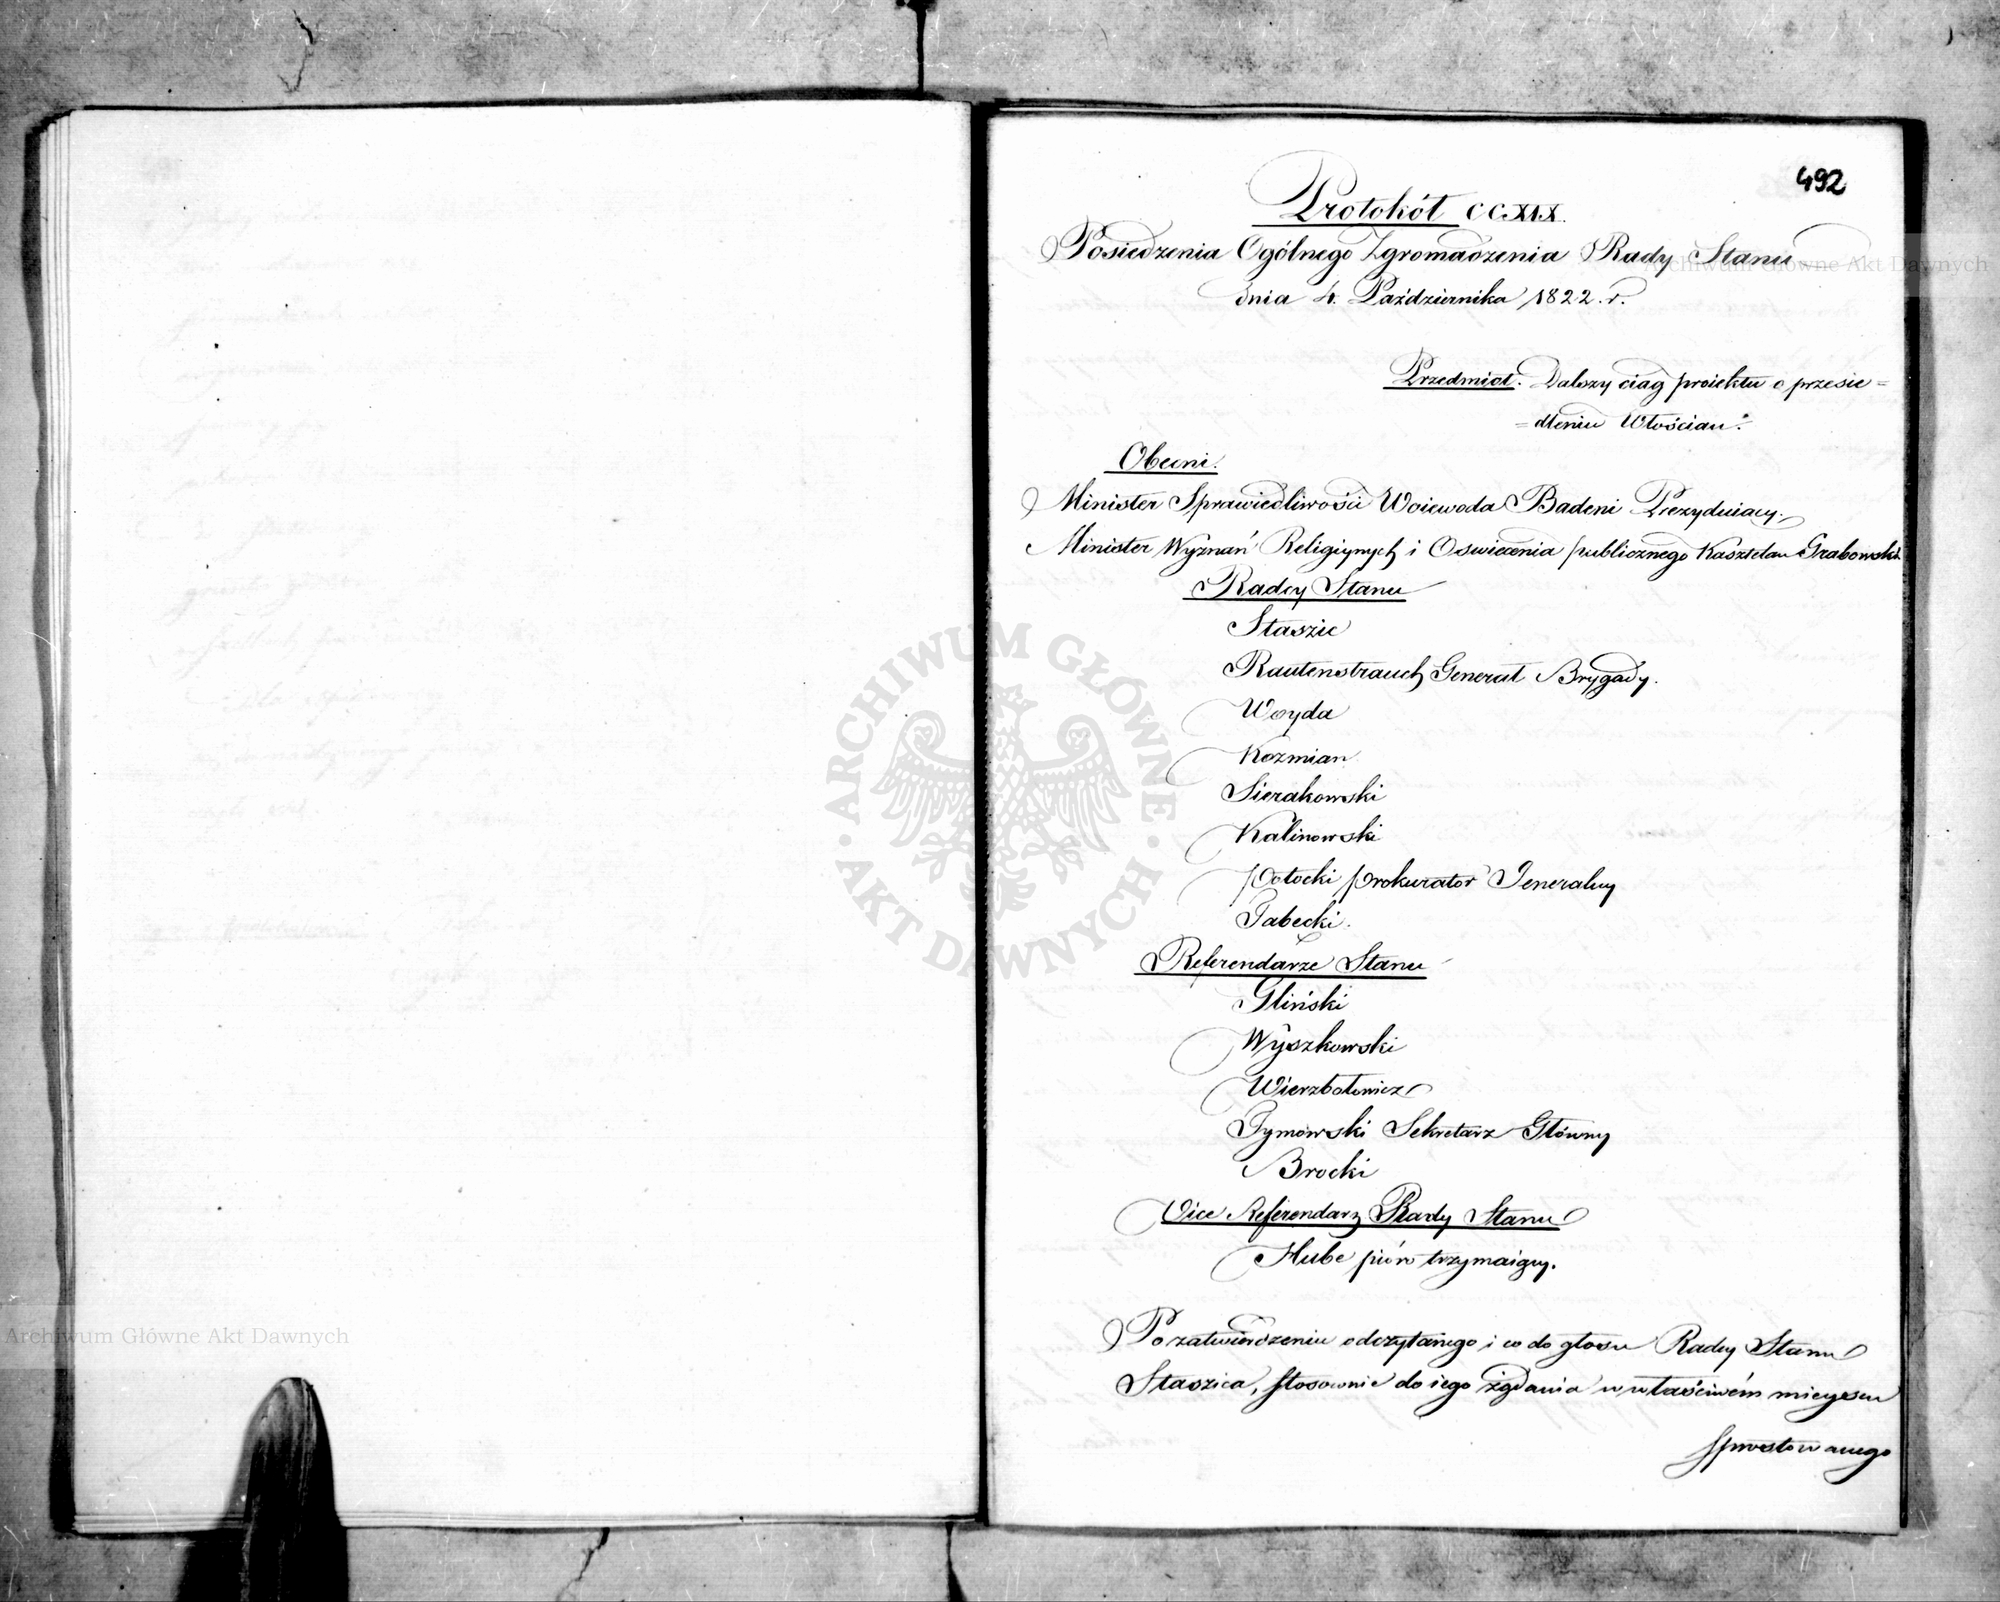 492
Protokół CCXIX.
Posiedzenia Ogólnego Zgromadzenia Rady Stanu
dnia 4. Października 1822. r.
Przedmiot. Dalszy ciąg proiektu o przesie=
=dleniu Włościan.
Obecni.
Minister Sprawiedliwości Woiewoda Badeni Prezyduiący.
Minister Wyznań Religiynych i Oswiecenia publicznego Kasztelan Grabowski
Radcy Stanu
Staszic
Rautenstrauch Generał Brygady.
Woyda
Kozmian
Sierakowski
Kalinowski
Potocki prokurator Jeneralny
Tabecki.
Referendarze Stanu
Gliński
Wyszkowski
Wierzbołowicz
Tymowski Sekretarz Główny
Brocki
Vice Referendarz Rady Stanu
Hube pióro trzymaiący.
Po zatwierdzeniu odczytanego i co do głosu Radcy Stanu
Staszica, stosownie do iego żądania w właściwém mieyscu
sprostowanego
Archiwum Główne Akt Dawnych
ARCHIWUM GŁÓWNE · AKT DAWNYCH ·
Archiwum Główne Akt Dawnych